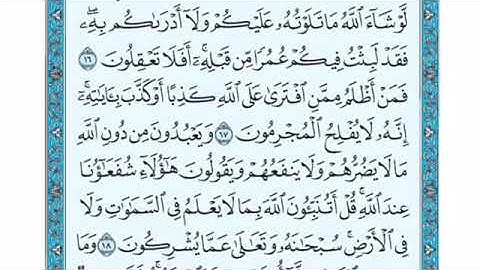 لَّوْ شَآءَ ٱللَّهُ مَا تَلَوْتُهُۥ عَلَيْكُمْ وَلَآ أَدْرَىٰكُم بِهِۦۖ
فَقَدْ لَبِثْتُ فِيكُمْ عُمُرًا مِّن قَبْلِهِۦٓۚ أَفَلَا تَعْقِلُونَ ١٦
فَمَنْ أَظْلَمُ مِمَّنِ ٱفْتَرَىٰ عَلَى ٱللَّهِ كَذِبًا أَوْ كَذَّبَ بِـَٔايَٰتِهِۦٓۚ
إِنَّهُۥ لَا يُفْلِحُ ٱلْمُجْرِمُونَ ١٧ وَيَعْبُدُونَ مِن دُونِ ٱللَّهِ
مَا لَا يَضُرُّهُمْ وَلَا يَنفَعُهُمْ وَيَقُولُونَ هَٰٓؤُلَآءِ شُفَعَٰٓؤُنَا
عِندَ ٱللَّهِۚ قُلْ أَتُنَبِّـُٔونَ ٱللَّهَ بِمَا لَا يَعْلَمُ فِى ٱلسَّمَٰوَٰتِ وَلَا
فِى ٱلْأَرْضِۚ سُبْحَٰنَهُۥ وَتَعَٰلَىٰ عَمَّا يُشْرِكُونَ ١٨ وَمَا